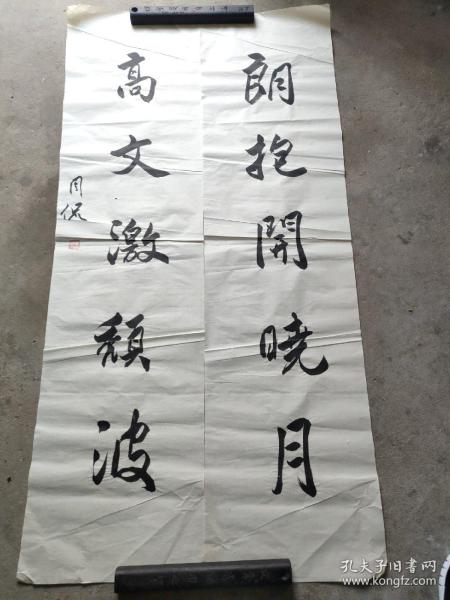 朗抱開曉月
高文激頹波
周侃
孔夫子旧书网
www.kongfz.com